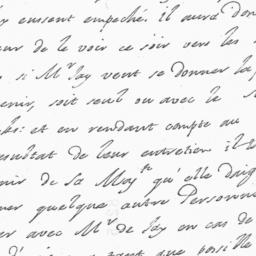 y eussent empeché. il aura
de le voir ce soir vers les
si Mr Jay veut se donner la
venir, soit seul ou avec le
et en rendant compte au
resultat de leur entretien il
de sa Maj.te qu'elle daig
quelque autre Personne
avec Mr de Jay en cas de
tant que possible